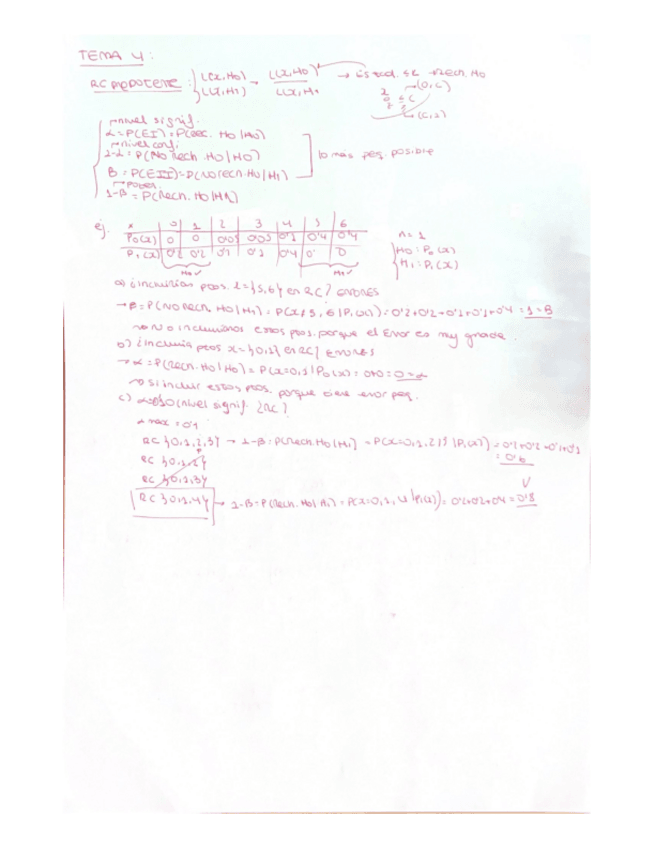 TEMA 4:
RC más potente: { L(x,H0) L(x,H1) → L(x,H0) / L(x,H1) → Estad. ≤ c → Rech. H0
(0,C)
(C,∞)
nivel signif.
α = P(EI) = P(Rec. H0 | H0)
nivel conf.
1-α = P(No Rech. H0 | H0)
lo más peq. posible
β = P(EII) = P(No rech. H0 | H1)
poten.
1-β = P(Rech. H0 | H1)
ej. x 0 1 2 3 4 5 6
P0(x) 0 0 0'05 0'05 0'1 0'4 0'4
P1(x) 0'2 0'2 0'1 0'1 0'4 0 0
n = 1
{ H0: P0(x)
H1: P1(x)
a) ¿incluirías ptos. x={5,6} en RC? errores
→ β = P(No Rech. H0 | H1) = 0'2+0'2+0'1+0'1+0'4 = 1 = β
→ No incluimos estos ptos. porque el error es muy grande.
b) ¿incluiría ptos x={0,1} en RC? errores
→ α = P(Rech. H0 | H0) = P(x=0,1 | P0(x)) = 0+0 = 0 = α
→ Si incluir estos ptos. porque tiene error peq.
c) nivel signif. ¿RC?
α max = 0'1
RC {0,1,2,3} → 1-β = P(Rech. H0 | H1) = P(x=0,1,2,3 | P1(x)) = 0'2+0'2+0'1+0'1
= 0'6
RC {0,1,2}
RC {0,1,3}
RC {0,1,4} → 1-β = P(Rech. H0 | H1) = P(x=0,1,4 | P1(x)) = 0'2+0'2+0'4 = 0'8